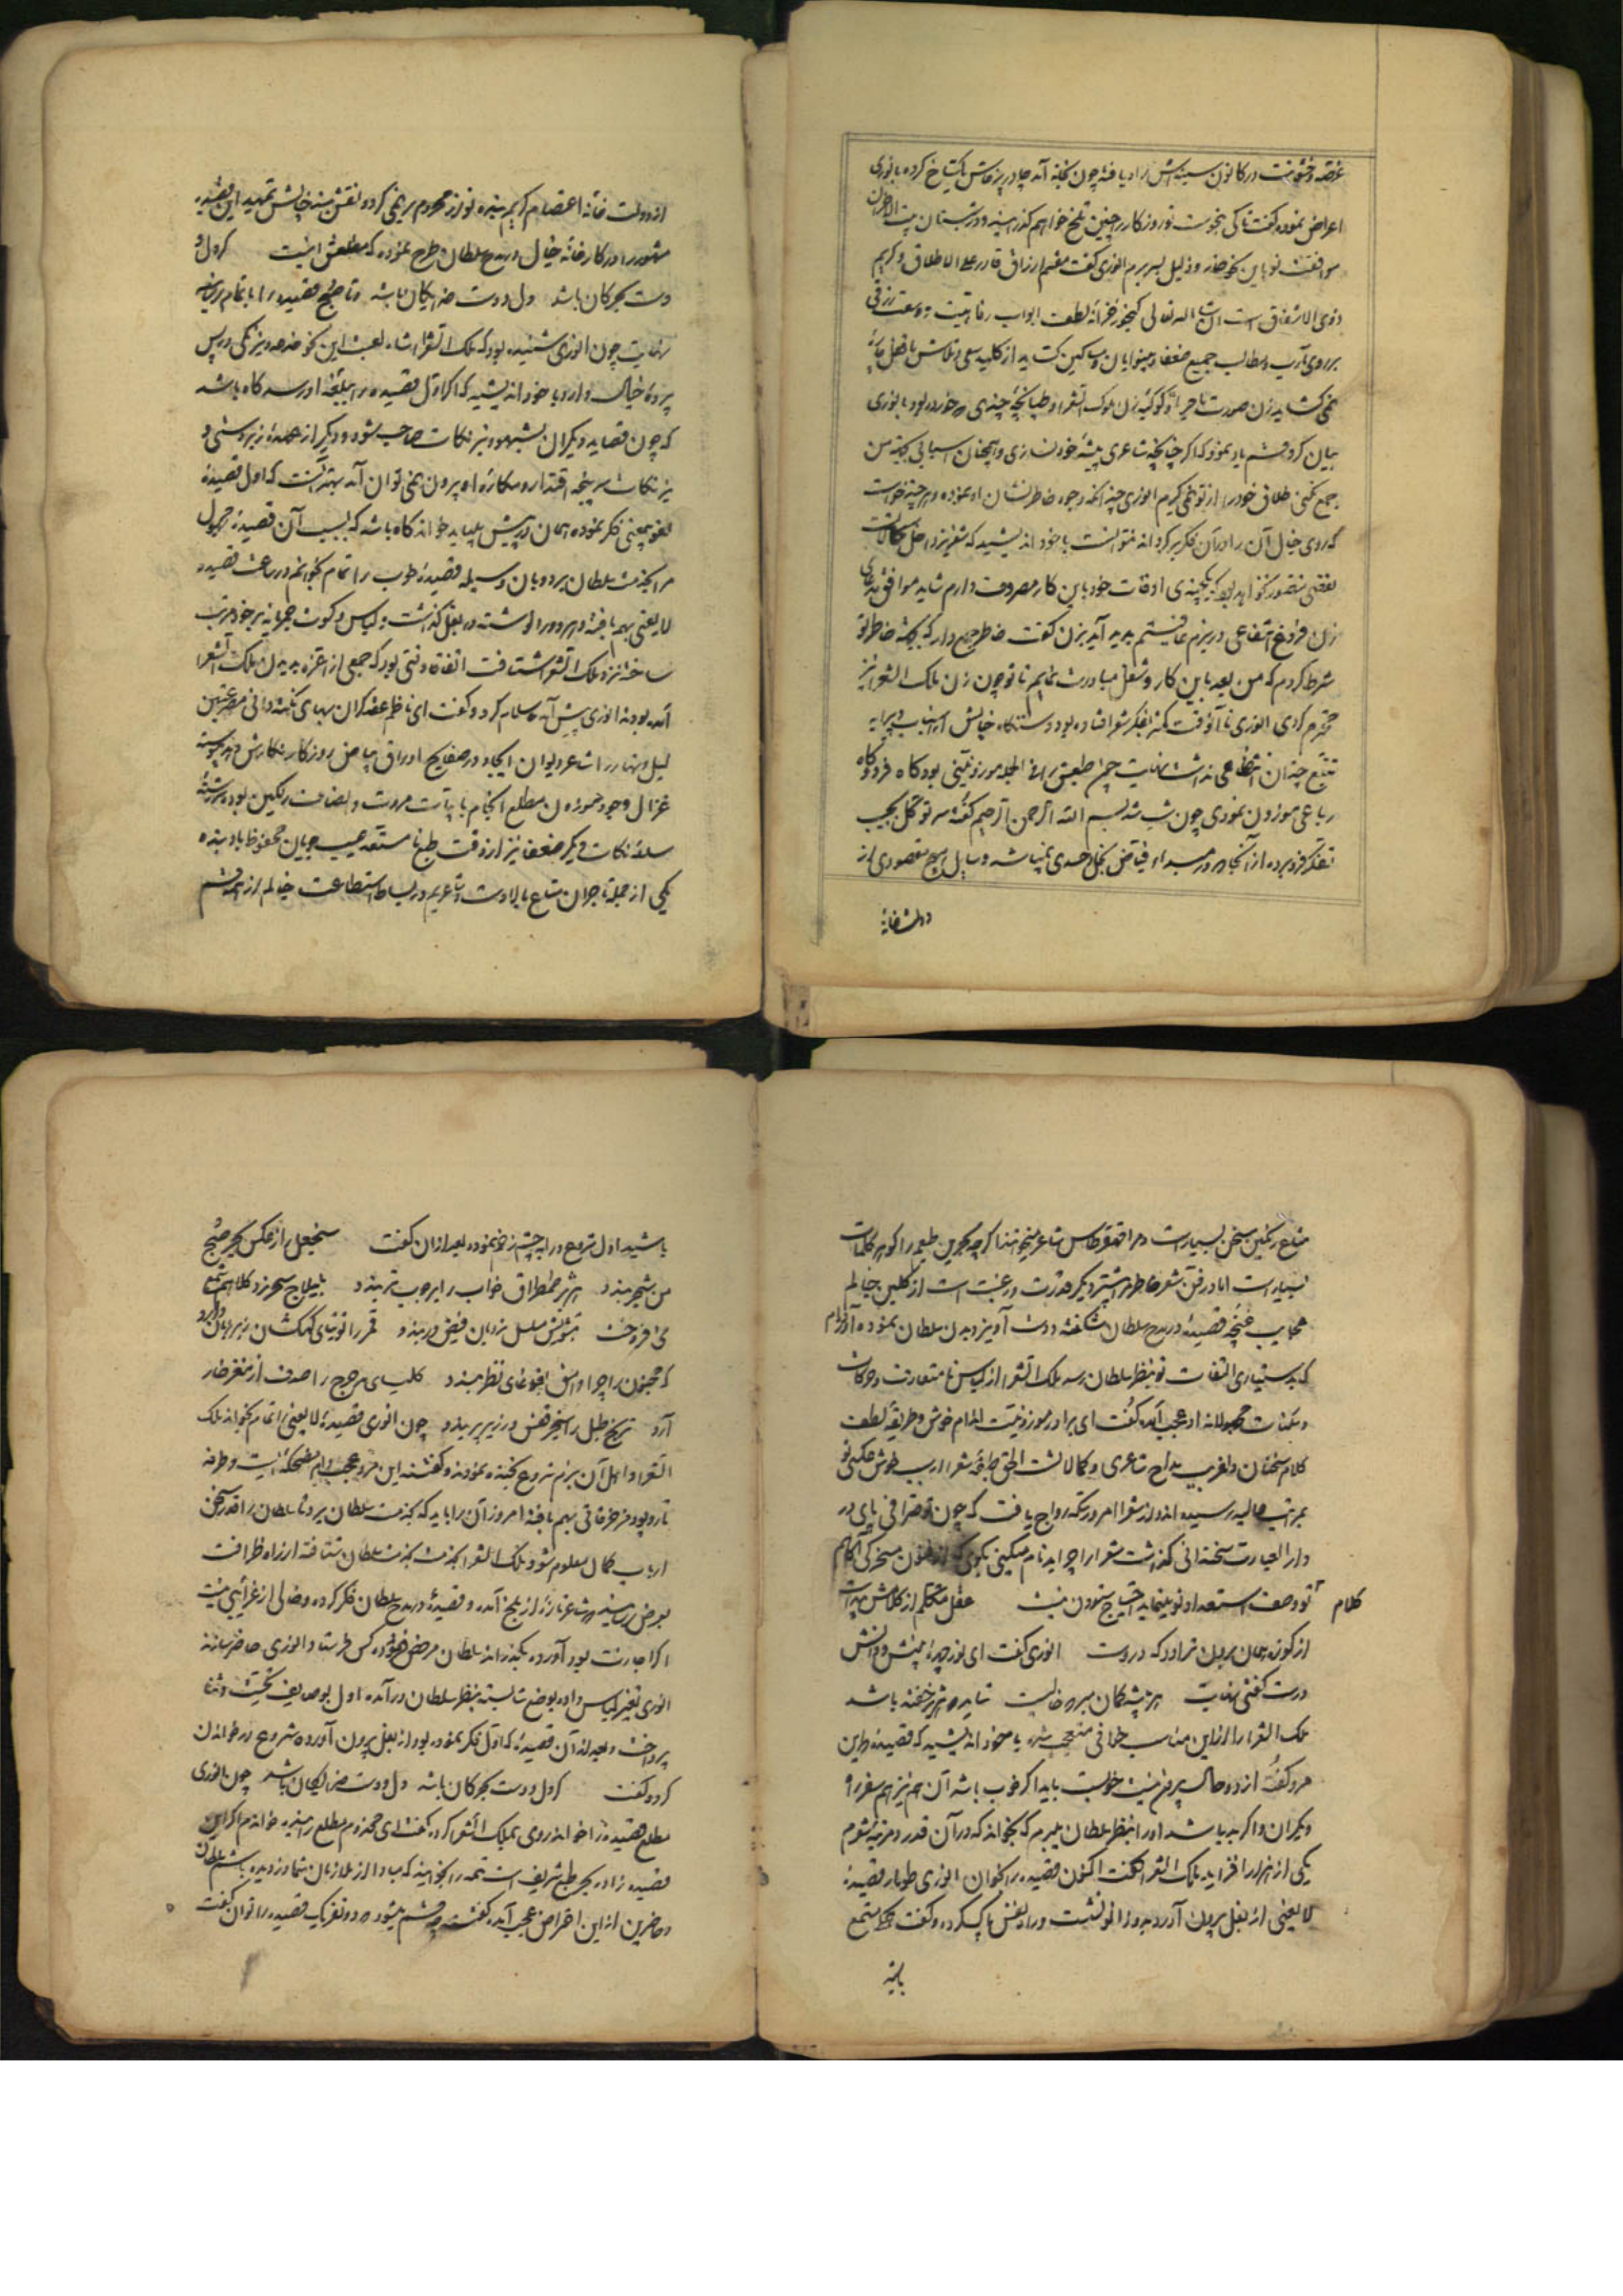 غصه و خشونت در کانون سینه‌اش راه یافته چون بخانه آمد چادر پرخاش گستاخ کرده بانوری
اعراض نموده گفت تا کی بنحوست تو روزگار چنین تلخ خواهم گذرانید و در شبستان بیت الاحزان
موافقت تو باین نحو خار و ذلیل بسر برم انوری گفت مقسم ارزاق قادر علی الاطلاق و کریم
ذوی الاشفاق است ان شاء الله تعالی گنجور خزانه لطفت ابواب رفاهیت و وسعت رزقی
بر روی مآرب و مطالب جمیع ضعفا و بینوایان و مساکین گشاید از کلید سعی و تلاش ما قفل
نمی‌گشاید زن صورت ماجرا و کوکبه زن ملوک الشعرا و طپانچه چندی که خورده بود بانوری
بیان کرد و قسم یاد نمود که اگر چنانچه شاعری پیشه خود نسازی و همچنان اسبابی بجهت من
جمع نکنی طلاق خود را از تو می‌گیرم انوری چندانکه وجوه خاطرنشان او نموده و هر چند خواست
که روی خیال آن را در آن فکر برگرداند نتوانست با خود اندیشید که شعر نزد اهل کمالات
نقصی متصور نخواهد بود که یکچندی اوقات خود باین کار مصروف دارم شاید موافق مدعای
زن فراغ انتفاعی در بزم عافیتم پدید آید بزن گفت خاطر جمع دار که بجهت خاطر تو
شرط کردم که من بعد باین کار و شغل مبادرت نمایم تا تو چون زن ملک الشعرا نیز
محترم گردی انوری تا آنوقت کمتر بفکر شعر افتاده بود و دستگاه خیالش از اسباب و پیرایه
تتبع چندان انتظامی نداشت نهایت چون طبعش را فی الجمله موزونیتی بود گاه فرد و گاه
رباعی موزون نمودی چون شب شد بسم الله الرحمن الرحیم گفته سر توکل بجیب
تفکر فرو برده از آنجا که در مبداء فیاض بخل احدی نمیباشد و سایل هیچ مقصودی از
دولتخانه
از دولت خانه اعتصام کریم بنده نواز محروم بر نمی‌گردد نقش بند خیالش تمهید این قصیده
مشهور را در کارخانه خیال در مدح سلطان طرح نموده که مطلعش اینست گر دل و
دست بحر و کان باشد دل و دست خدایگان باشد و تا صبح قصیده را باتمام رسانید
نهایت چون انوری شنیده بود که ملک الشعرا شاه لعبت این نحو خدعه و نیرنگی در پس
پرده خیال دارد با خود اندیشید که اگر اول قصیده را بملغمه او رسد گاه باشد
که چون قصاید دیگران بشهود و نیز نکات صاحب شود و دیگر از عهده زبردستی و
نیز نکات سرپنجه اقتدار و مکاره او بیرون نمی‌توان آمد بهتر آنست که اول قصیده
لغو بیمعنی فکر نموده همان را پیش بباید خواند گاه باشد که بسبب آن قصیده مجهول
مرا بخدمت سلطان برد و بآن وسیله قصیده خوب را تمام بخوانم در ساعت قصیده
لا یعنی بهم بافته و هر دو را نوشته در بغل گذاشت و لباس و کسوت مجریانه بر خود مرتب
ساخته نزد ملک الشعرا شتافت اتفاقا وقتی بود که جمعی از اعزه بدیدن ملک الشعرا
آمده بودند انوری پیش آمده سلام کرد و گفت ای ناظم عقد گران بهای نکته دانی مصرعتین
لیل و نهار را شاعر دیوان ایجاد در صفایح اوراق بیاض روزگار نگارش دهد پیوسته
غزال وجود حمیده‌ات مطلع انجام با بیات مروت و انصاف رنگین بوده سررشته
سلسله نکات دیگر ضعفا نیز از وقت طبع نا مستعد عیب جویان محفوظ باد بنده
یکی از جمله تاجران متاع بالادست شاعریم در بساط استطاعت خیالم از همه قسم
متاع رنگین سخن بسیار است و مرا قسطاس شاعر سنج اگر چه بحرین طبعم را گوهر کلمات
بسیار است اما در فن شعر خاطرم را بیشتر دیگر قدرت و رغبت است از گلبن خیالم
عجایب غنچه قصیده در مدح سلطان شگفته و دست آویز دیدن سلطان نموده آورده‌ام
که بدستیاری التفات تو بنظر سلطان رسد ملک الشعرا از لباس نا متعارف و حرکات
و سکنات مجهولانه او عجب آمده گفت ای برادر موزونیت اندام خوش و طریقه لطف
کلام سخنان دلفریب مداح شاعری و کمالاتست الحق طبقه شعرا را سبب جوش حکمتی تو
بمرتبه عالیه رسیده اند و از شعرا امروز سکه رواج یافت که چون تو صرافی پای در
دارالعیارت سخندانی گذاشت شعرا را چرا بدنام میکنی بگوی که از فنون مسخرگی آگاهم
کلام تو وصف استعداد تو مینماید احتیاج ستودن نیست عقل متکلم از کلامش پیداست
از کوزه همان برون تراود که دروست انوری گفت ای نور چهره بینش و دانش
درست گفتی نهایت هر بیشه گمان مبر که خالیست شاید که پلنگ خفته باشد
ملک الشعرا را از این مناسب خوانی متعجب شده با خود اندیشید که قصیده را این
مرد گفته از دو حال بیرون نیست خواست باید اگر خوب باشد آن هم نیز هم سفره
دیگران و اگر بد باشد او را بنظر سلطان میبرم که بخواند که در آن قدر و مرتبه شعرم
یکی از هزار افزاید ملک الشعرا گفت اکنون قصیده را بخوان انوری طومار قصیده
لا یعنی از بغل بیرون آورد بدو زانو نشست و راه نفس پاک کرده و گفت که مستمع
باشید
باشید اول شروع در آب چشم زخم نموده بعد از آن گفت سنجعل را ز عکس بحر صبح
من شجر بندد طمطراق خواب را بر چوب تر بندد
می افروخت بتوئش سلسل نردبان فیض در بندد قمر را توتیای کهکشان
که مجنون را چرا وامق بغوغای نظر بندد کلیسای مرجح را صدف از مغفر خار
آرد ترنج طبل را سنجر قفس در زیر پر بندد چون انوری قصیده لا یعنی را تمام بخواند ملک
الشعرا و اهل آن بزم شروع بخنده نمودند و گفتند این مرد عجب دام مضحکه ایست و طرفه
تار و پود مزخرفاتی بهم بافته امروز آن را باید که بخدمت سلطان برد تا سلطان را قدر سخن
ارباب کمال معلوم شود ملک الشعرا بخدمت سلطان شتافته از راه ظرافت
بعرض رسانید که شاعر تازه از بلخ آمده و قصیده در مدح سلطان فکر کرده و خالی از غرایبی نیست
اگر اجازت بود آورده بگذراند سلطان مرخص فرموده کس فرستاد انوری حاضر سازند
انوری تغییر لباس داده بوضع شایسته بنظر سلطان درآمده اول بوصایف تحیت و ثنا
پرداخت و بعد از آن قصیده که اول فکر نموده بود از بغل بیرون آورده شروع در خواندن
کرد و گفت گر دل و دست بحر و کان باشد دل و دست خدایگان باشد چون انوری
مطلع قصیده را خواند روی بملک الشعرا کرده گفت ای مخدوم مطلع را بنده خواندم اگر این
قصیده زاده بحر طبع شریف است تتمه را بخوانید که مبادا از ملازمان شما دزدیده باشم سلطان
و حاضرین از این اعتراض عجب آمده گفتند چه قسم میشود که دو نفر یک قصیده را توان گفت